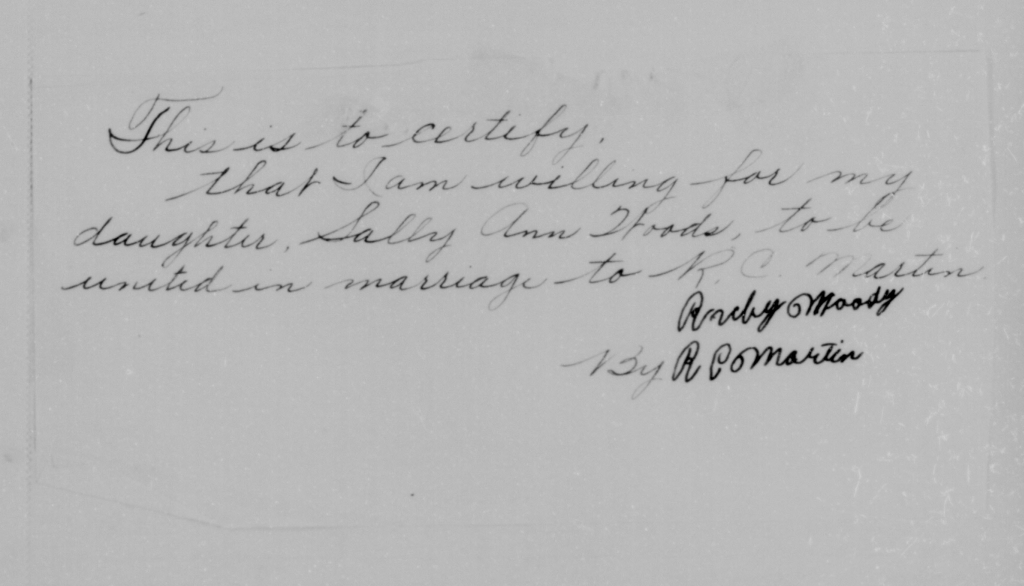 This is to certify.
that I am willing for my
daughter, Sally Ann Woods, to be
united in marriage to R. C. Martin.
Moody
By R C Martin